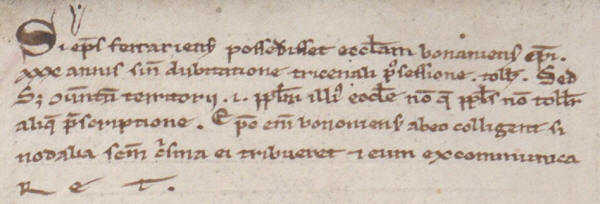 Si ep̄s ferrariensis possedisset eccl̄am bonaniensis ep̄i.
xxx annis sin̄ dubitatione tricenali p̄sessione. toll̄. Sed
S; ... territorij .i. ppl̄m illi᾽ eccl̄e nō q̄ ppl̄s nō toll̄r
aliq̄ p̄scriptione. E p̄c em̄ bononiensis ab eo colligent si
nodalia scm̄ c̄sma ei tribueret ⁊ eum excommunica
R E T.